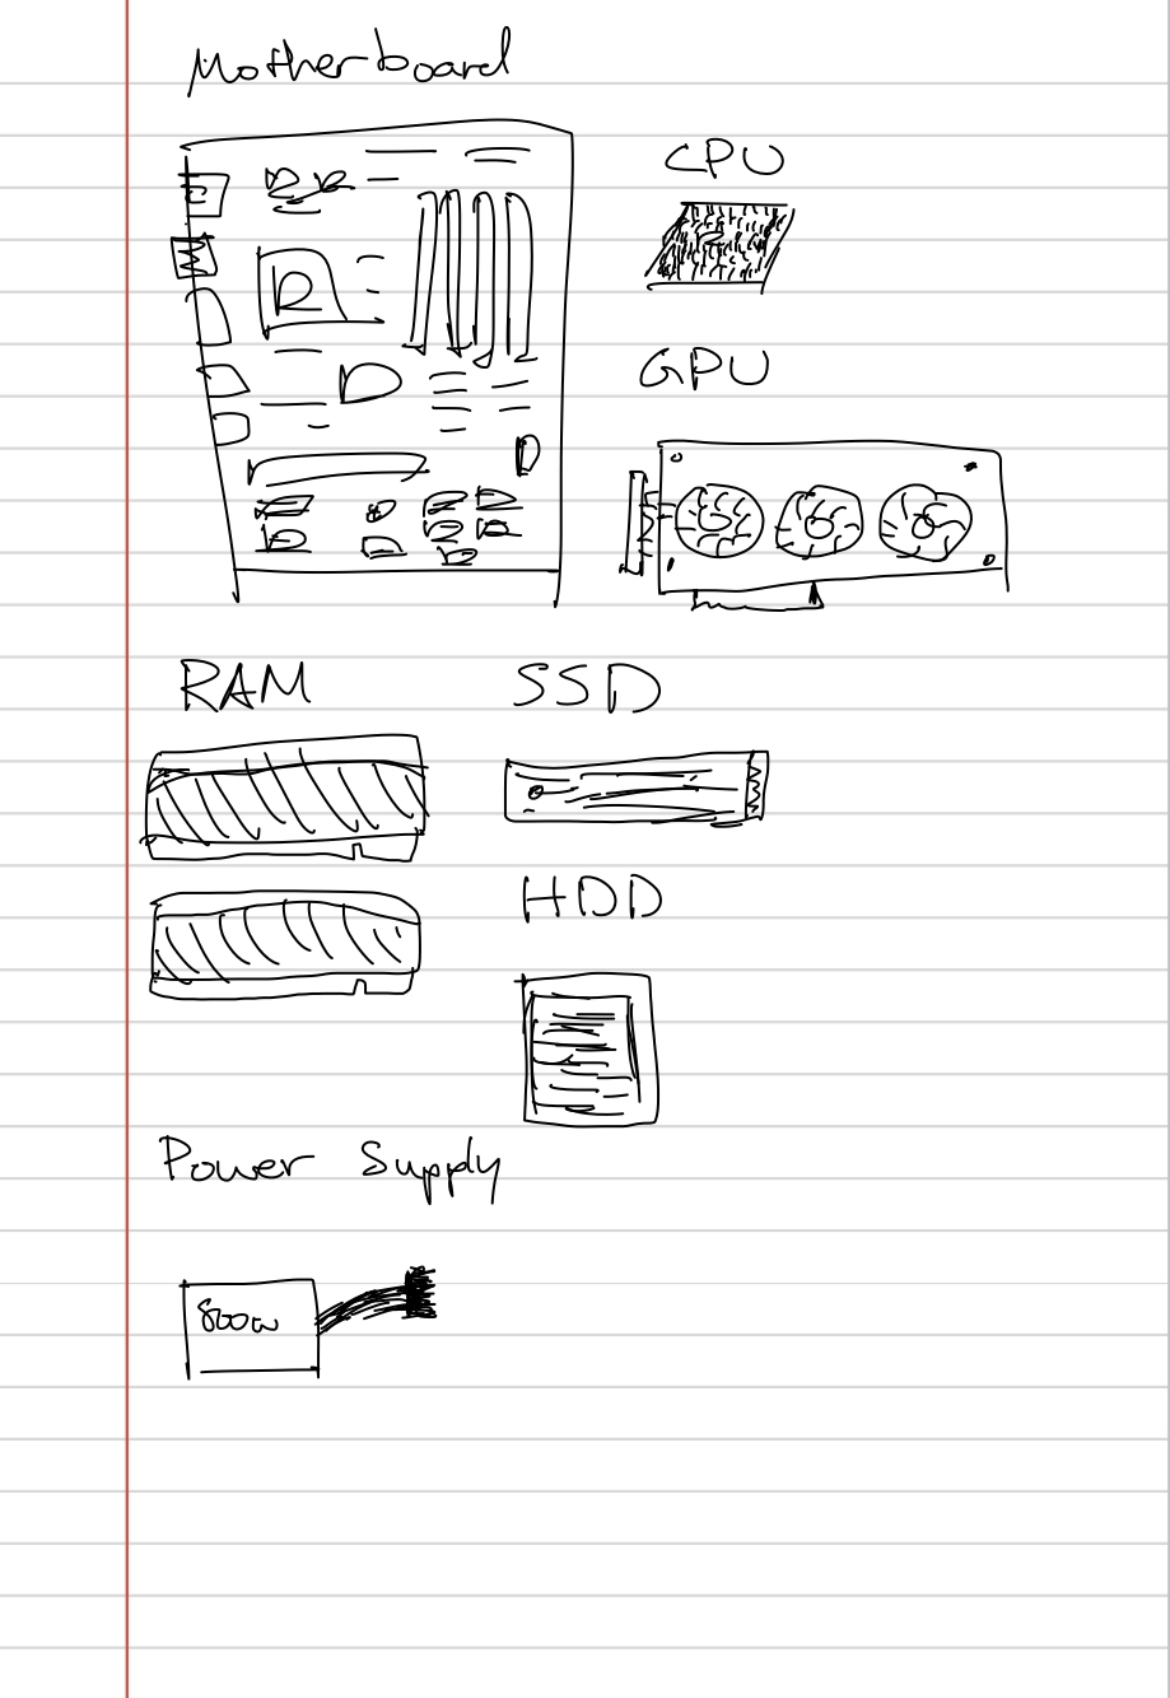 Motherboard
CPU
GPU
RAM
SSD
HDD
Power Supply
800w